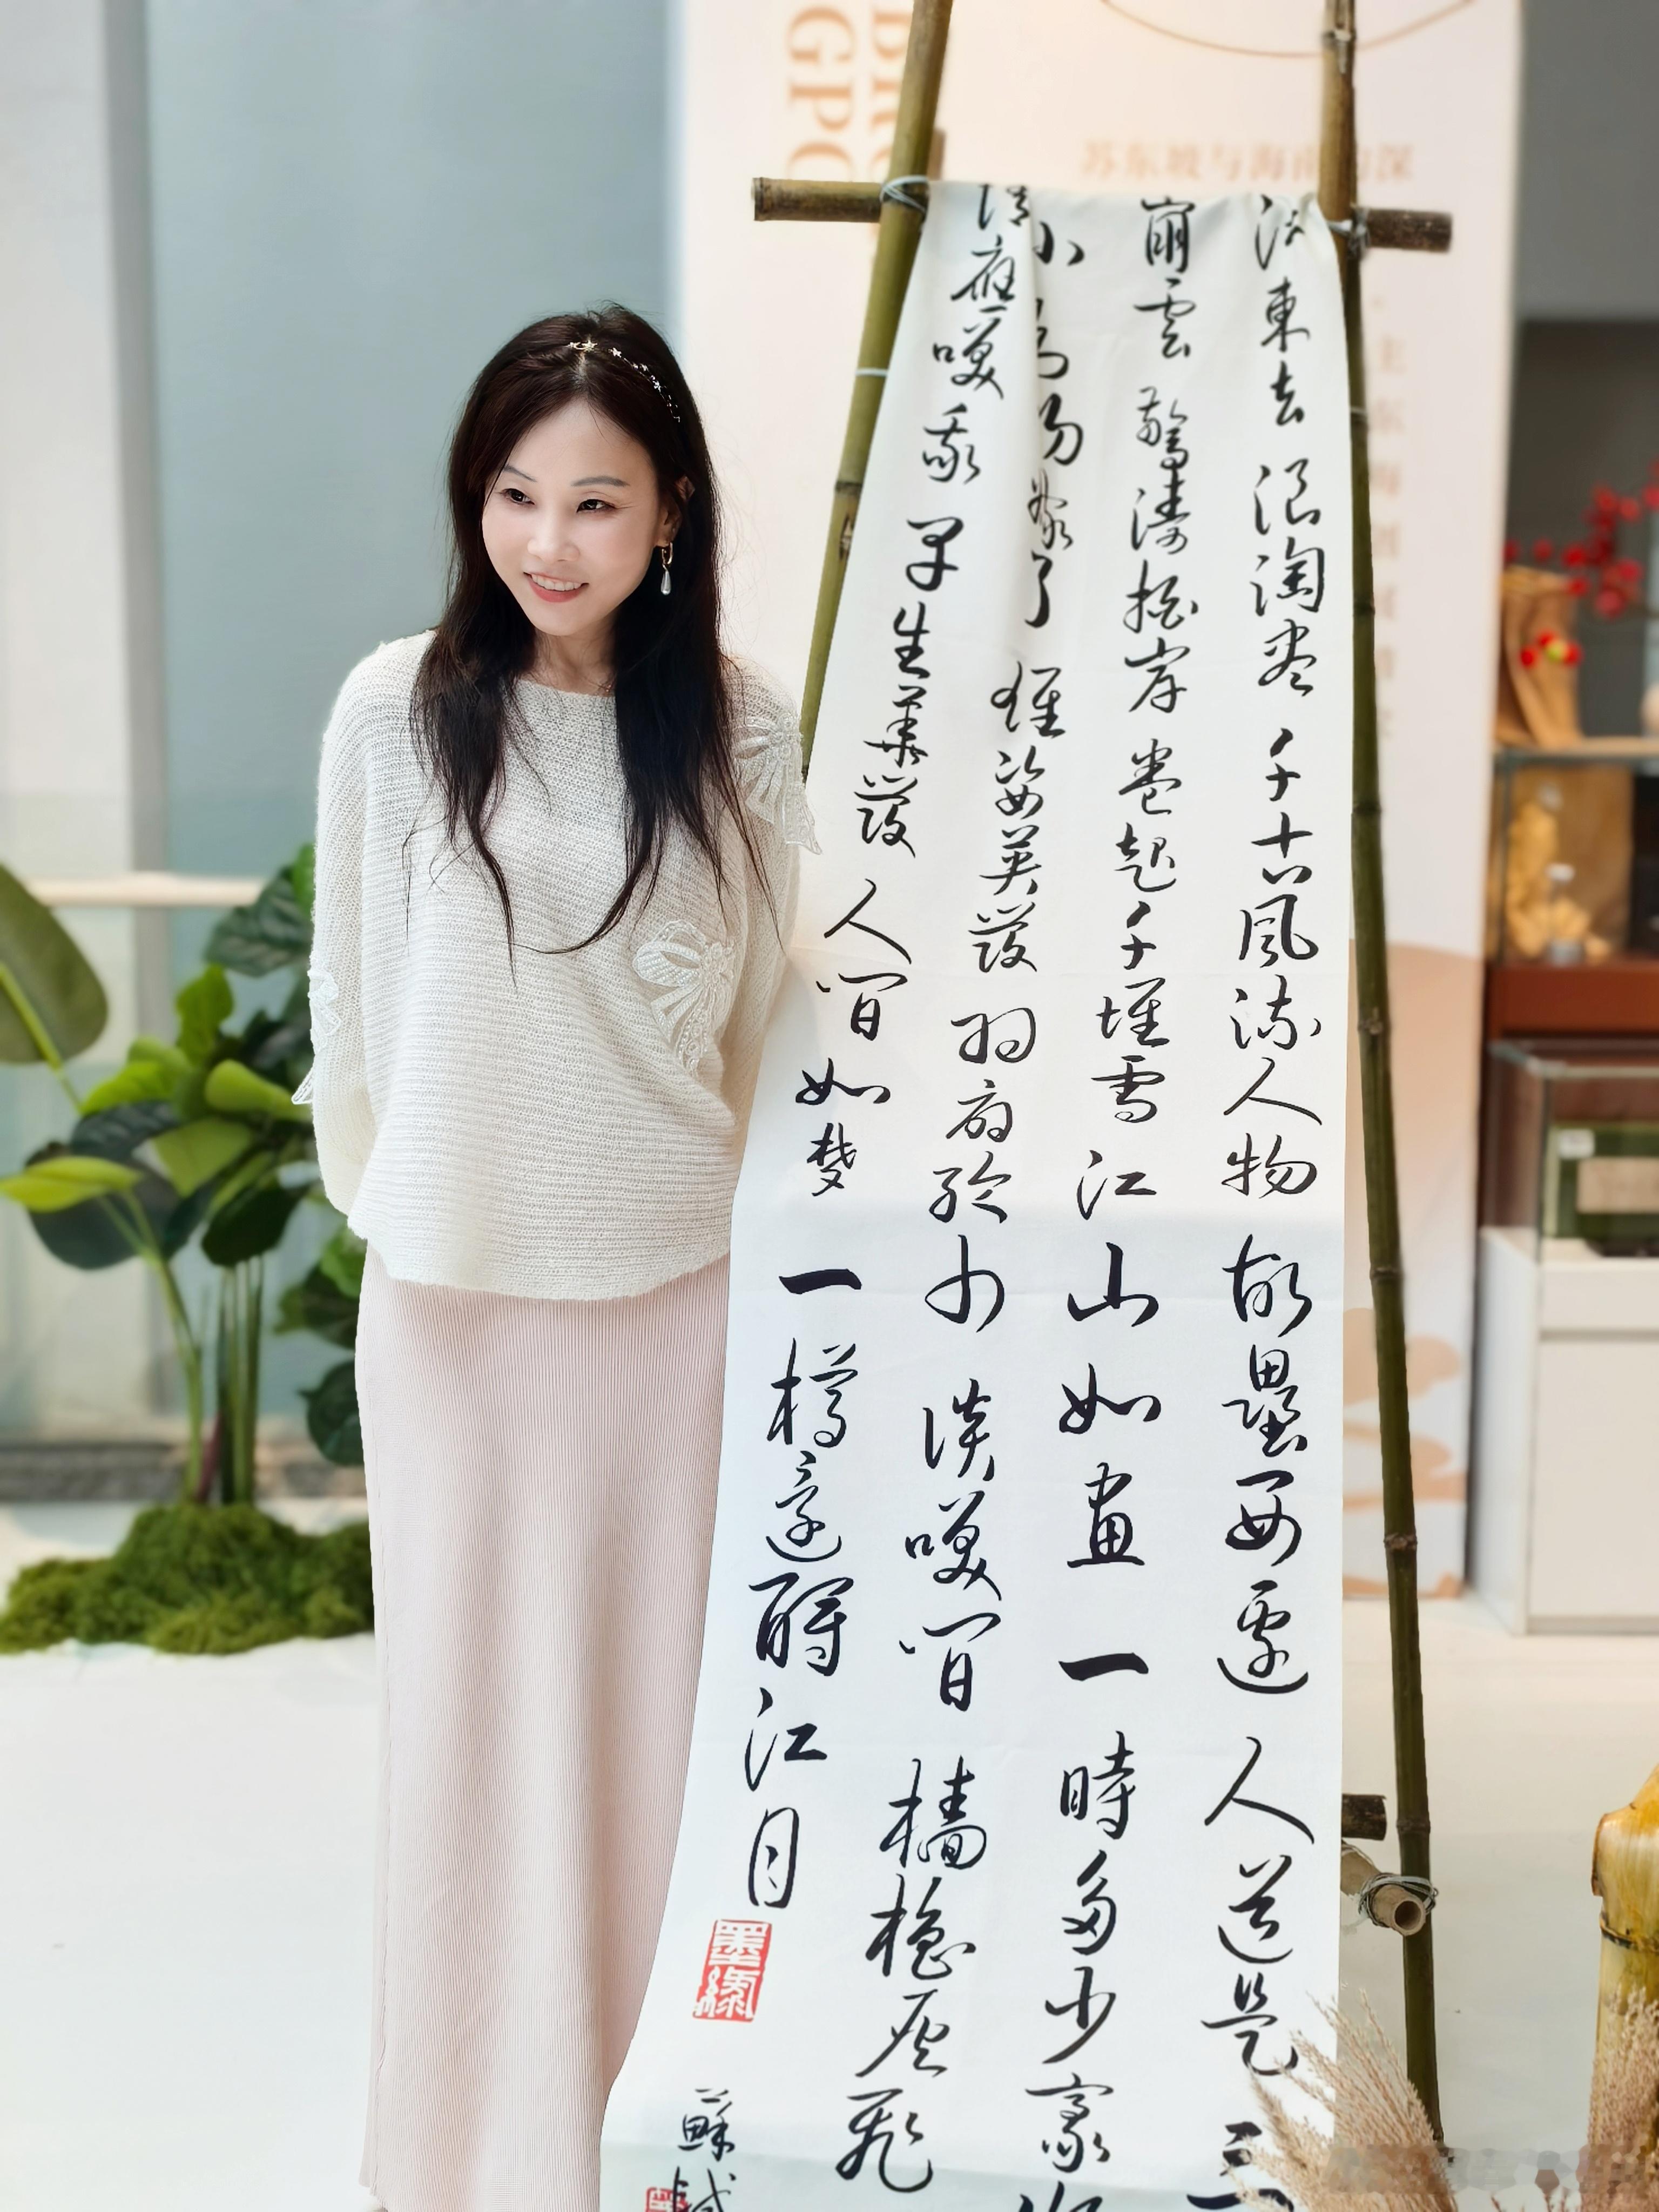 江東去 浪淘尽 千古風流人物 故壘西邊 人道是 三
崩雲 驚濤拍岸 卷起千堆雪 江山如畫 一時多少豪
小喬初嫁了 雄姿英發 羽扇綸巾 談笑間 檣櫓灰飛
情應笑我 早生華發 人間如梦 一樽還酹江月
墨緣
蘇軾
苏东坡与海南的深